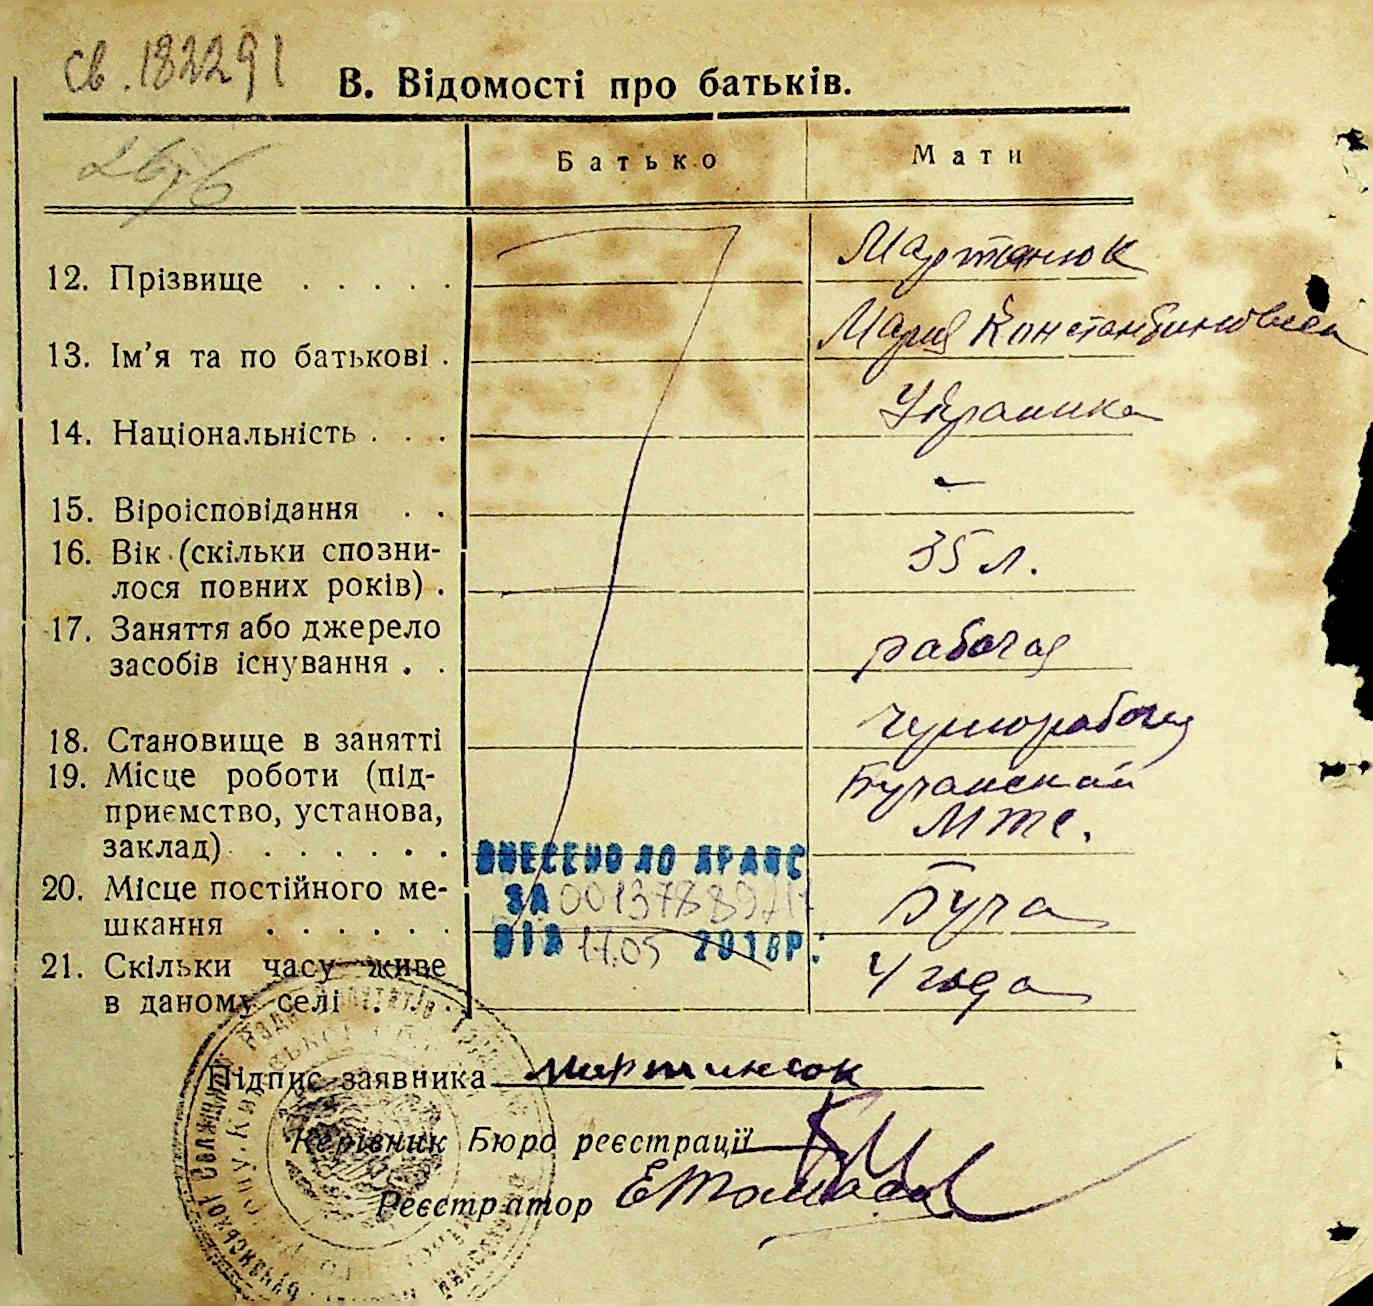 св. 182291
В. Відомості про батьків.
Батько Мати
12. Прізвище . . . . . Мартанюк
13. Ім'я та по батькові . Мария Константиновна
14. Національність . . . Украинка
15. Віроісповідання . . -
16. Вік (скільки спозни-
лося повних років) . 35 л.
17. Заняття або джерело
засобів існування . . рабочая
18. Становище в занятті чернорабочая
19. Місце роботи (під-
приємство, установа,
заклад) . . . . . . Бучанский
МТС.
ВНЕСЕНО ДО ДРАЦС
20. Місце постійного ме-
шкання . . . . . . Буча
ЗА 00137889717
ВІД 17.05 2018Р.
21. Скільки часу живе
в даному селі . . . 4 года
Підпис заявника Мартинюк
Керівник Бюро реєстрації
Реєстратор